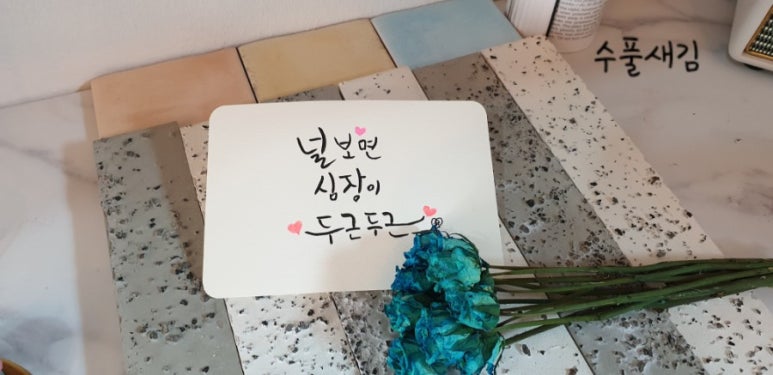 수풀새김
널 보면
심장이
두근두근